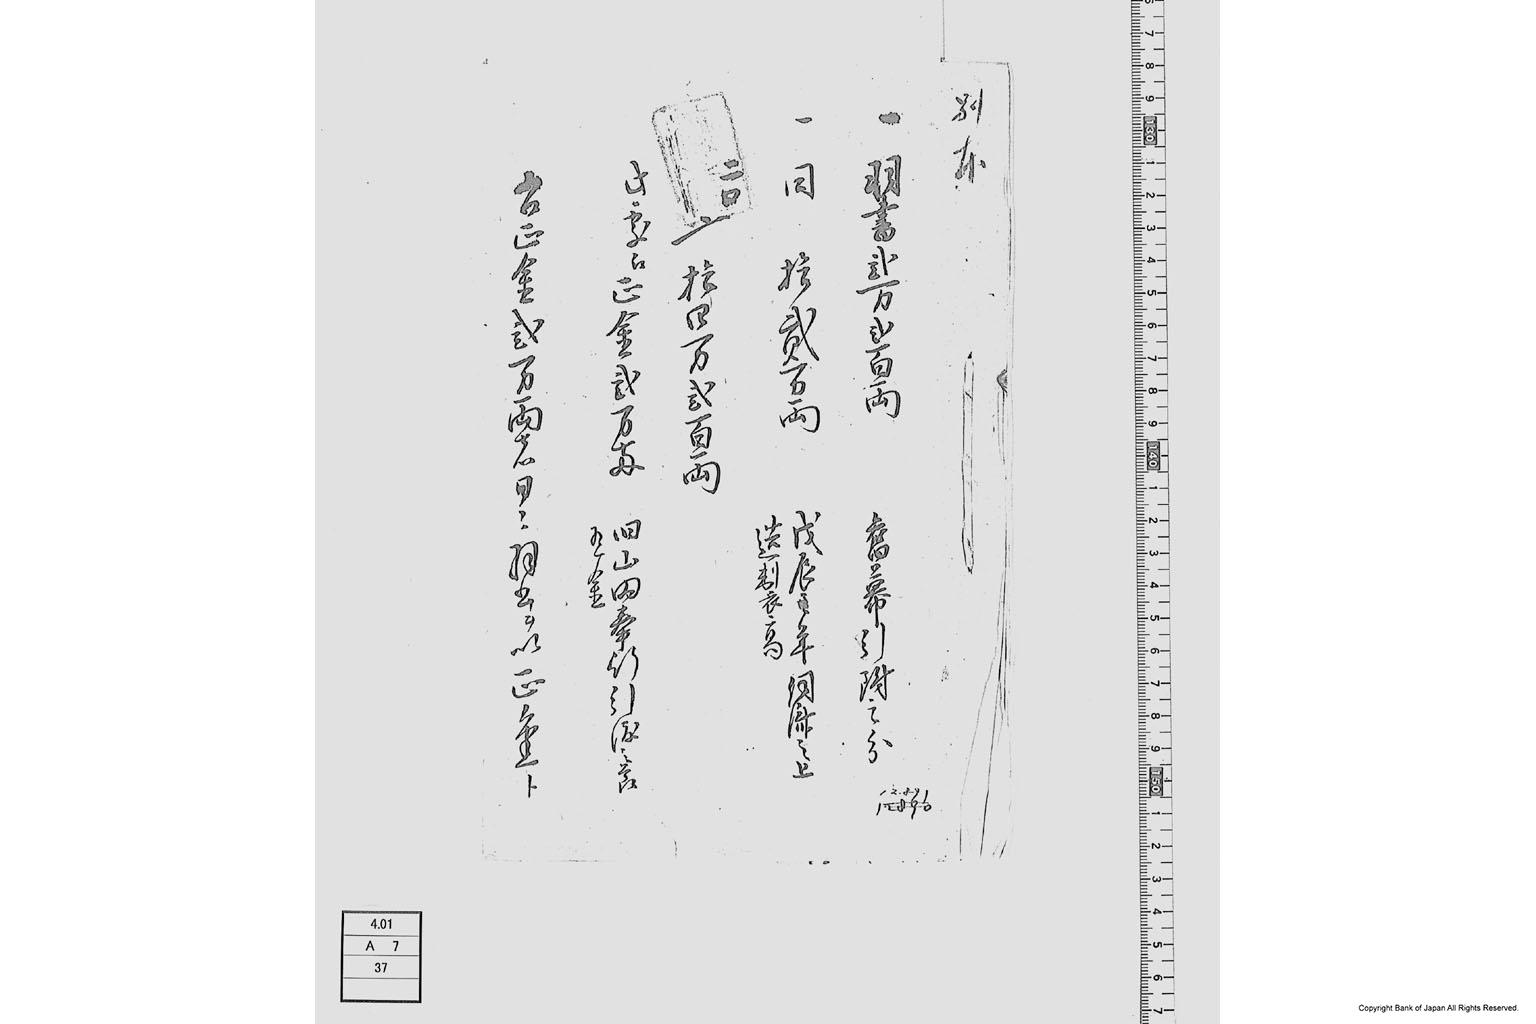 別紙
一 羽書弐万弐百両 舊幕引附之分
一 同 拾貳万両 戊辰年伺済之上
造製表高
二口
〆拾四万弐百両
此処江正金弐万両 旧山田奉行引渡之節
有金
右正金弐万両者日々羽書ヲ以正金ト
4.01
A 7
37
Copyright Bank of Japan All Rights Reserved.